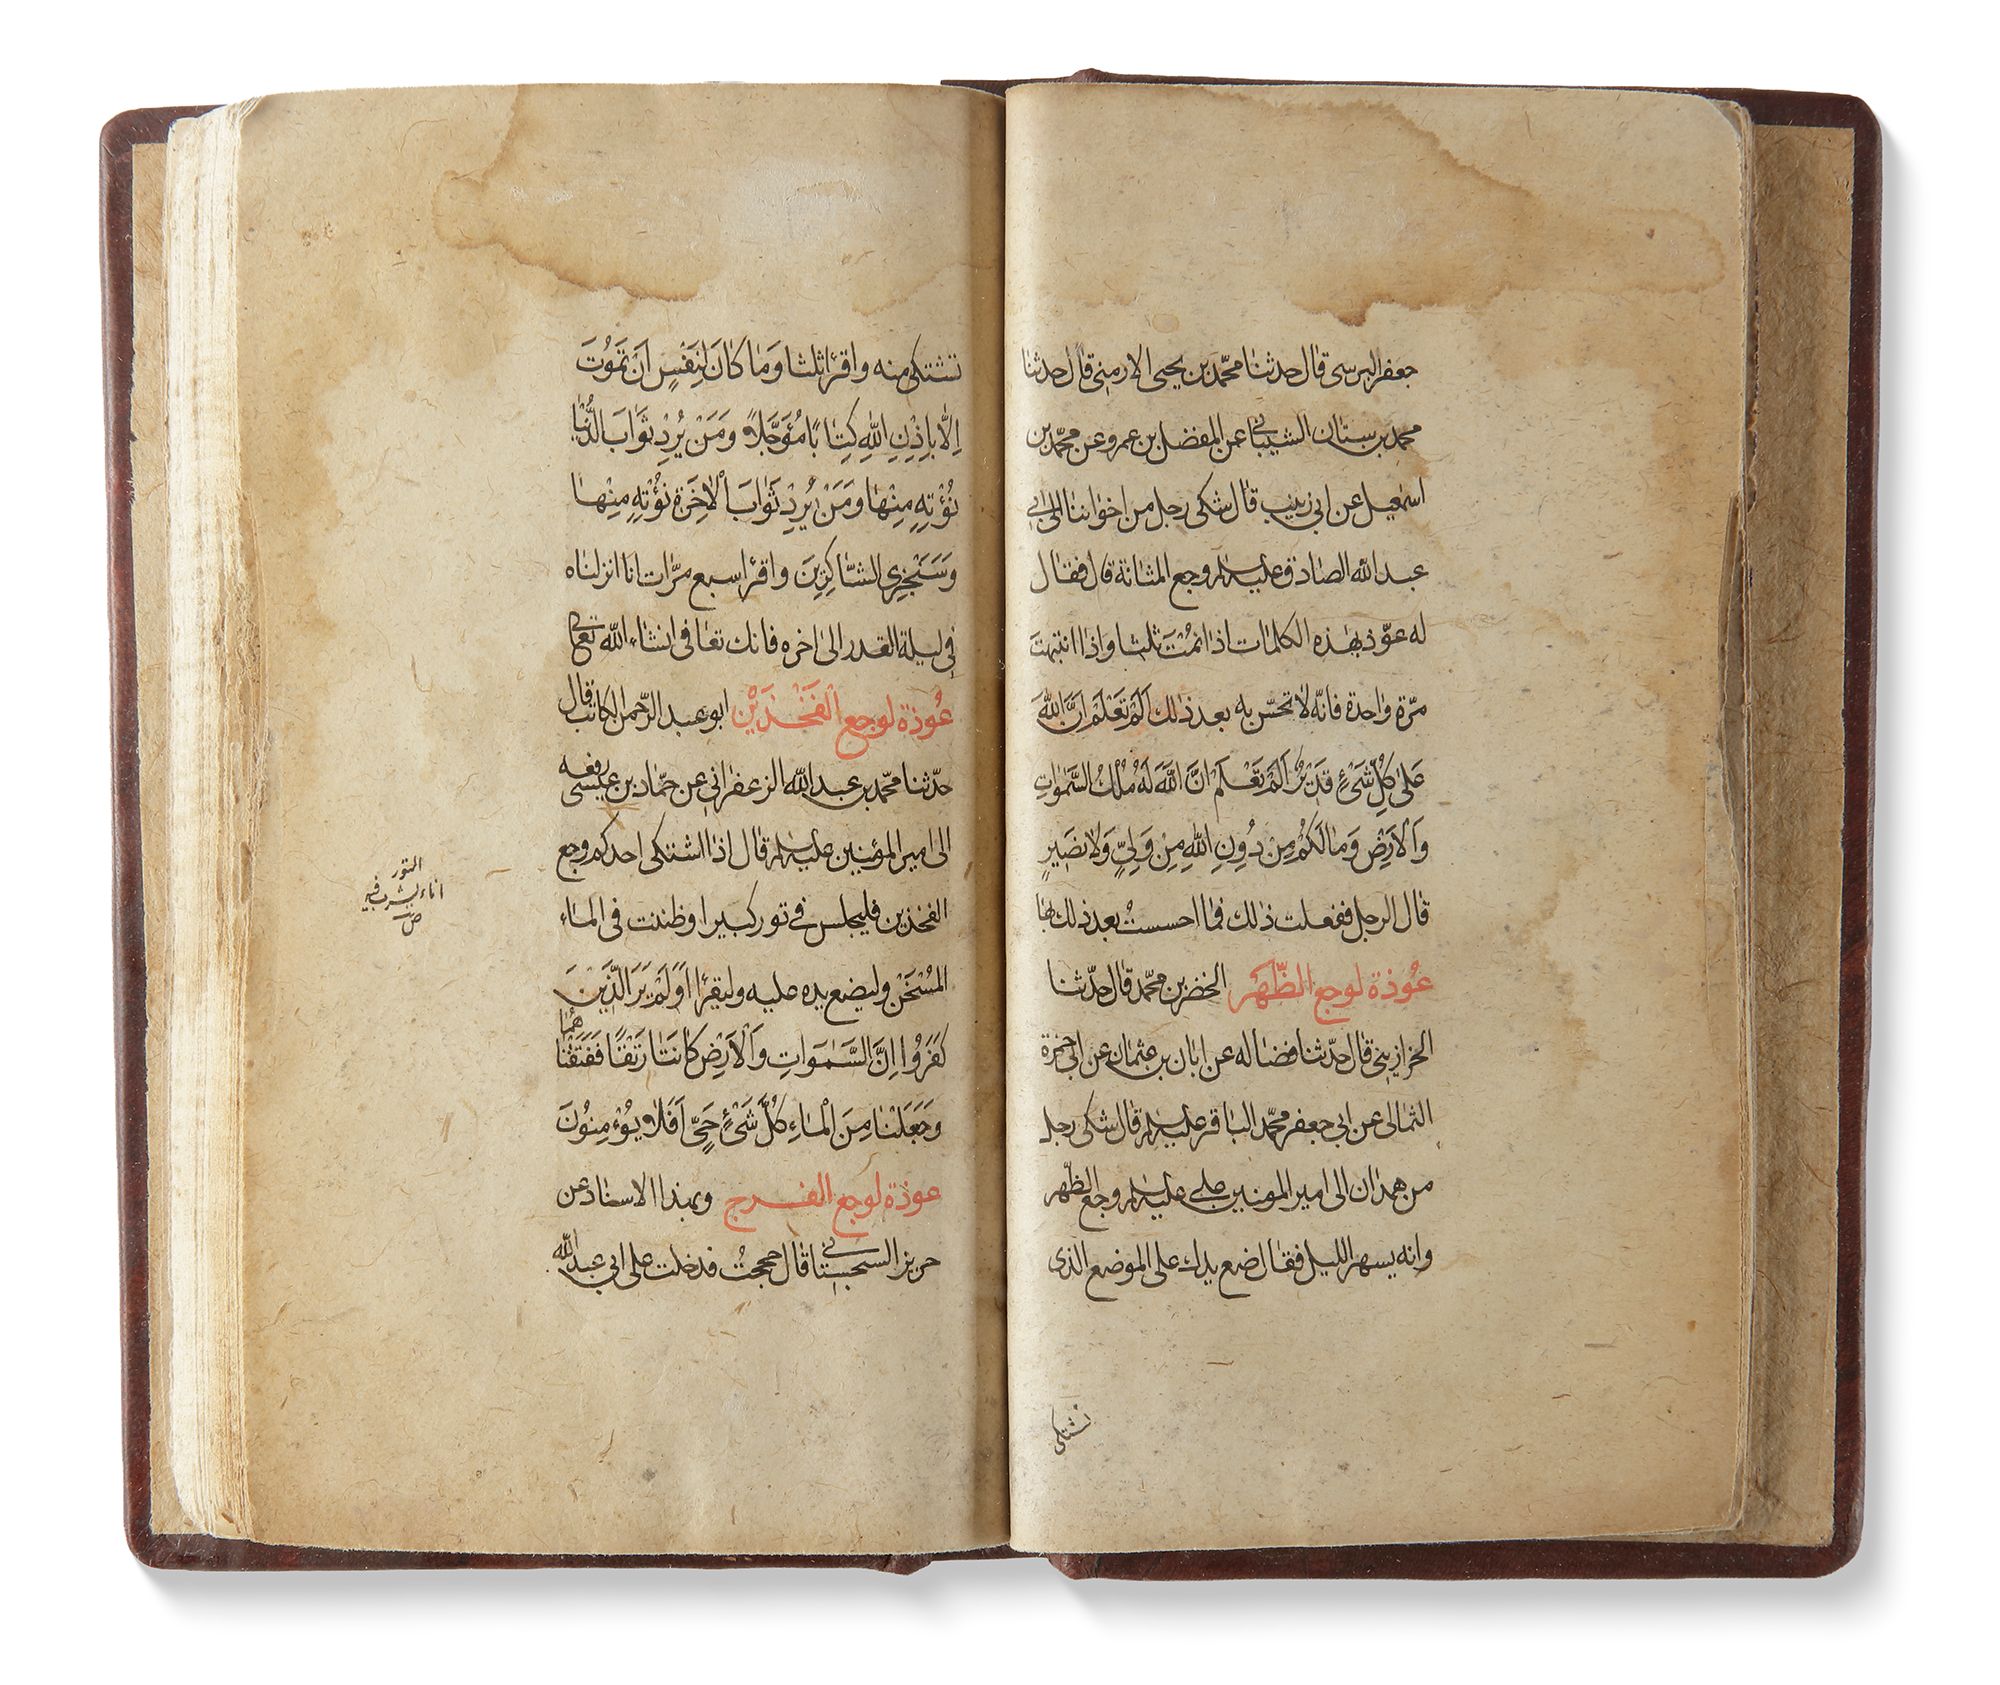 جعفر البرسى قال حدثنا محمّد بن يحيى الارمنى قال حدثنا
محمد بن سنان الشيبانى عن المفضل بن عمرو عن محمّد بن
اسمعيل عن ابى زينب قال شكى رجل من اخواننا الى ابى
عبد الله الصادق عليه السلم وجع المثانة قال فقال
له عوّذ بهذه الكلمات اذا نمت ثلثا واذا انتبهت
مرّة واحدة فانّه لا تحسّ به بعد ذلك اَلَمْ تَعْلَمْ اَنَّ اللهَ
عَلى كُلِّ شَيْءٍ قَدِيْرٌ اَلَمْ تَعْلَمْ اَنَّ اللهَ لَهُ مُلْكُ السَّمٰوٰتِ
وَالْاَرْضِ وَمٰا لَكُمْ مِنْ دُوْنِ اللهِ مِنْ وَلِيٍّ وَلا نَصِيْرٍ
قال الرجل ففعلت ذلك فما احسست بعد ذلك بها
عُوْذة لوجع الظَّهَر الخضر بن محمّد قال حدّثنا
الخرازينى قال حدّثنا فضاله عن ابان بن عثمان عن ابى حمزة
الثمالى عن ابى جعفر محمّد الباقر عليه السلم قال شكى رجل
من همدان الى امير المومنين على عليه السلم وجع الظّهر
وانه يسهر الليل فقال ضع يدك على الموضع الذى
تشتكى
تشتكى منه واقرأ ثلثا وَمٰا كٰانَ لِنَفْسٍ اَنْ تَمُوْتَ
اِلّا بِاِذْنِ اللهِ كِتٰابًا مُؤَجَّلاً وَمَنْ يُرِدْ ثَوٰابَ الدُّنْيٰا
نُؤْتِهِ مِنْهٰا وَمَنْ يُرِدْ ثَوٰابَ الْاٰخِرَةِ نُؤْتِهِ مِنْهٰا
وَسَنَجْزِى الشّٰاكِرِيْنَ واقرأ سبع مرّات انا انزلناه
فى ليلة القدر الى اخره فانك تعافى انشاء الله تعالى
عُوْذة لوجع الْفَخْذَيْن ابو عبد الرّحمن الكاتب قال
حدّثنا محمّد بن عبد الله الزعفرانى عن حمّاد بن عيسى رفعه
الى امير المؤمنين عليه السلم قال اذا اشتكى احدكم وجع
الفخذين فليجلس فى تور كبير او طنت فى الماء
المُسْخَن وليضع يده عليه وليقرأ اَوَلَمْ يَرَ الَّذِيْنَ
كَفَرُوْا اِنَّ السَّمٰوَاتِ وَالْاَرْضَ كٰانَتٰا رَتْقًا فَفَتَقْنٰاهُمٰا
وَجَعَلْنٰا مِنَ الْمٰاءِ كُلَّ شَيْءٍ حَيٍّ اَفَلٰا يُؤْمِنُوْنَ
عوذة لوجع الفرج وبهذا الاسناد عن
حريز السجستانى قال حججت فدخلت على ابى عبد الله
التور
اناء يشرب فيه
ص